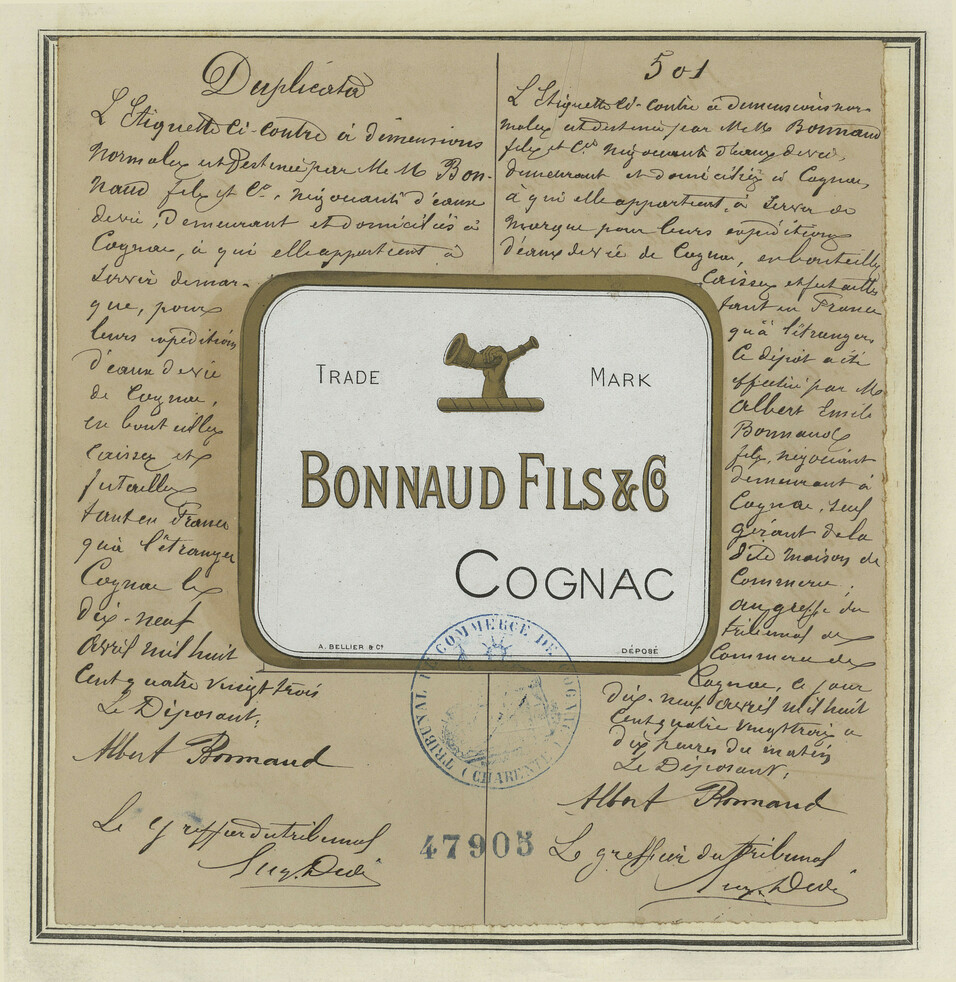 Duplicata
L'Etiquette ci-contre à dimensions
normales est destinée par M M Bon-
naud fils et Cie, négociants d'eaux
de vie, Demeurant et domiciliés à
Cognac, à qui elle appartient à
servir de mar-
que, pour
leurs expéditions
d'eaux de vie
de Cognac,
en bouteilles
Caisses et
futailles
tant en France
qu'à l'étranger
Cognac le
dix-neuf
avril mil huit
cent quatre vingt trois
Le Déposant,
Albert Bonnaud
Le greffier du tribunal
501
L'Etiquette ci-contre à dimensions nor-
males est destinée par M. M. Bonnaud
fils et Cie négociants d'eaux de vie,
demeurant et domiciliés à Cognac,
à qui elle appartient, à servir de
marque pour leurs expéditions
d'eaux de vie de Cognac, en bouteilles
Caisses et futailles
tant en France
qu'à l'étranger
Ce dépôt a été
effectué par M.
Albert Emile
Bonnaud
fils, négociant
demeurant à
Cognac, seul
gérant de la
dite maison de
Commerce,
au greffe du
tribunal de
Commerce de
Cognac, ce jour
dix-neuf avril mil huit
cent quatre vingt trois à
dix heures du matin
Le Déposant,
Albert Bonnaud
Le greffier du tribunal
TRADE MARK
BONNAUD FILS & Co
COGNAC
A. BELLIER & Cie
DÉPOSÉ
TRIBUNAL DE COMMERCE DE COGNAC
(CHARENTE)
47905